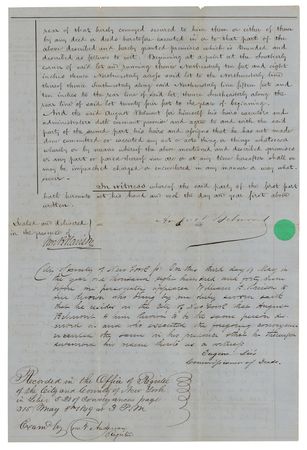 rear of that hereby conveyed secured to him them or either of them
by any deed or deeds heretofore executed in or to that part of the
above described and hereby granted premises which is bounded and
described as follows to wit. Beginning at a point at the Southerly
corner of said lot and running thence Northwesterly ten feet and eight
inches thence Northeasterly across said lot to the Northeasterly line
thereof thence Southeasterly along said Northeasterly line fifteen feet and
ten inches to the rear line of said lot, thence Southwesterly along the
rear line of said lot twenty five feet to the place of beginning.
And the said August Belmont for himself his heirs executors and
administrators doth covenant promise and agree to and with the said
party of the second part his heirs and assigns that he has not made
done committed or executed any act or acts thing or things whatsoever
whereby or by means whereof the above mentioned and described premises
or any part or parcel thereof now are or at any time hereafter shall or
may be impeached charged or encumbered in any manner or way what-
soever.
In witness whereof the said party of the first part
hath hereunto set his hand and seal the day and year first above
written.
Sealed and delivered
in the presence of
August Belmont
City & County of New York ss. On this third day of May in
the year one thousand eight hundred and forty nine
before me personally appeared William B.
to me known who being by me duly sworn said
that he resided in the City of New York that August
Belmont to him known to be the same person de-
scribed in and who executed the foregoing conveyance
executed the same in his presence whereupon he
subscribed his name thereto as a witness
Eugene
Commissioner of Deeds.
Recorded in the Office of Register
of the City and County of New York
in Liber 520 of Conveyances page
315 May 8th 1849 at 3 P.M.
Examd by
Register